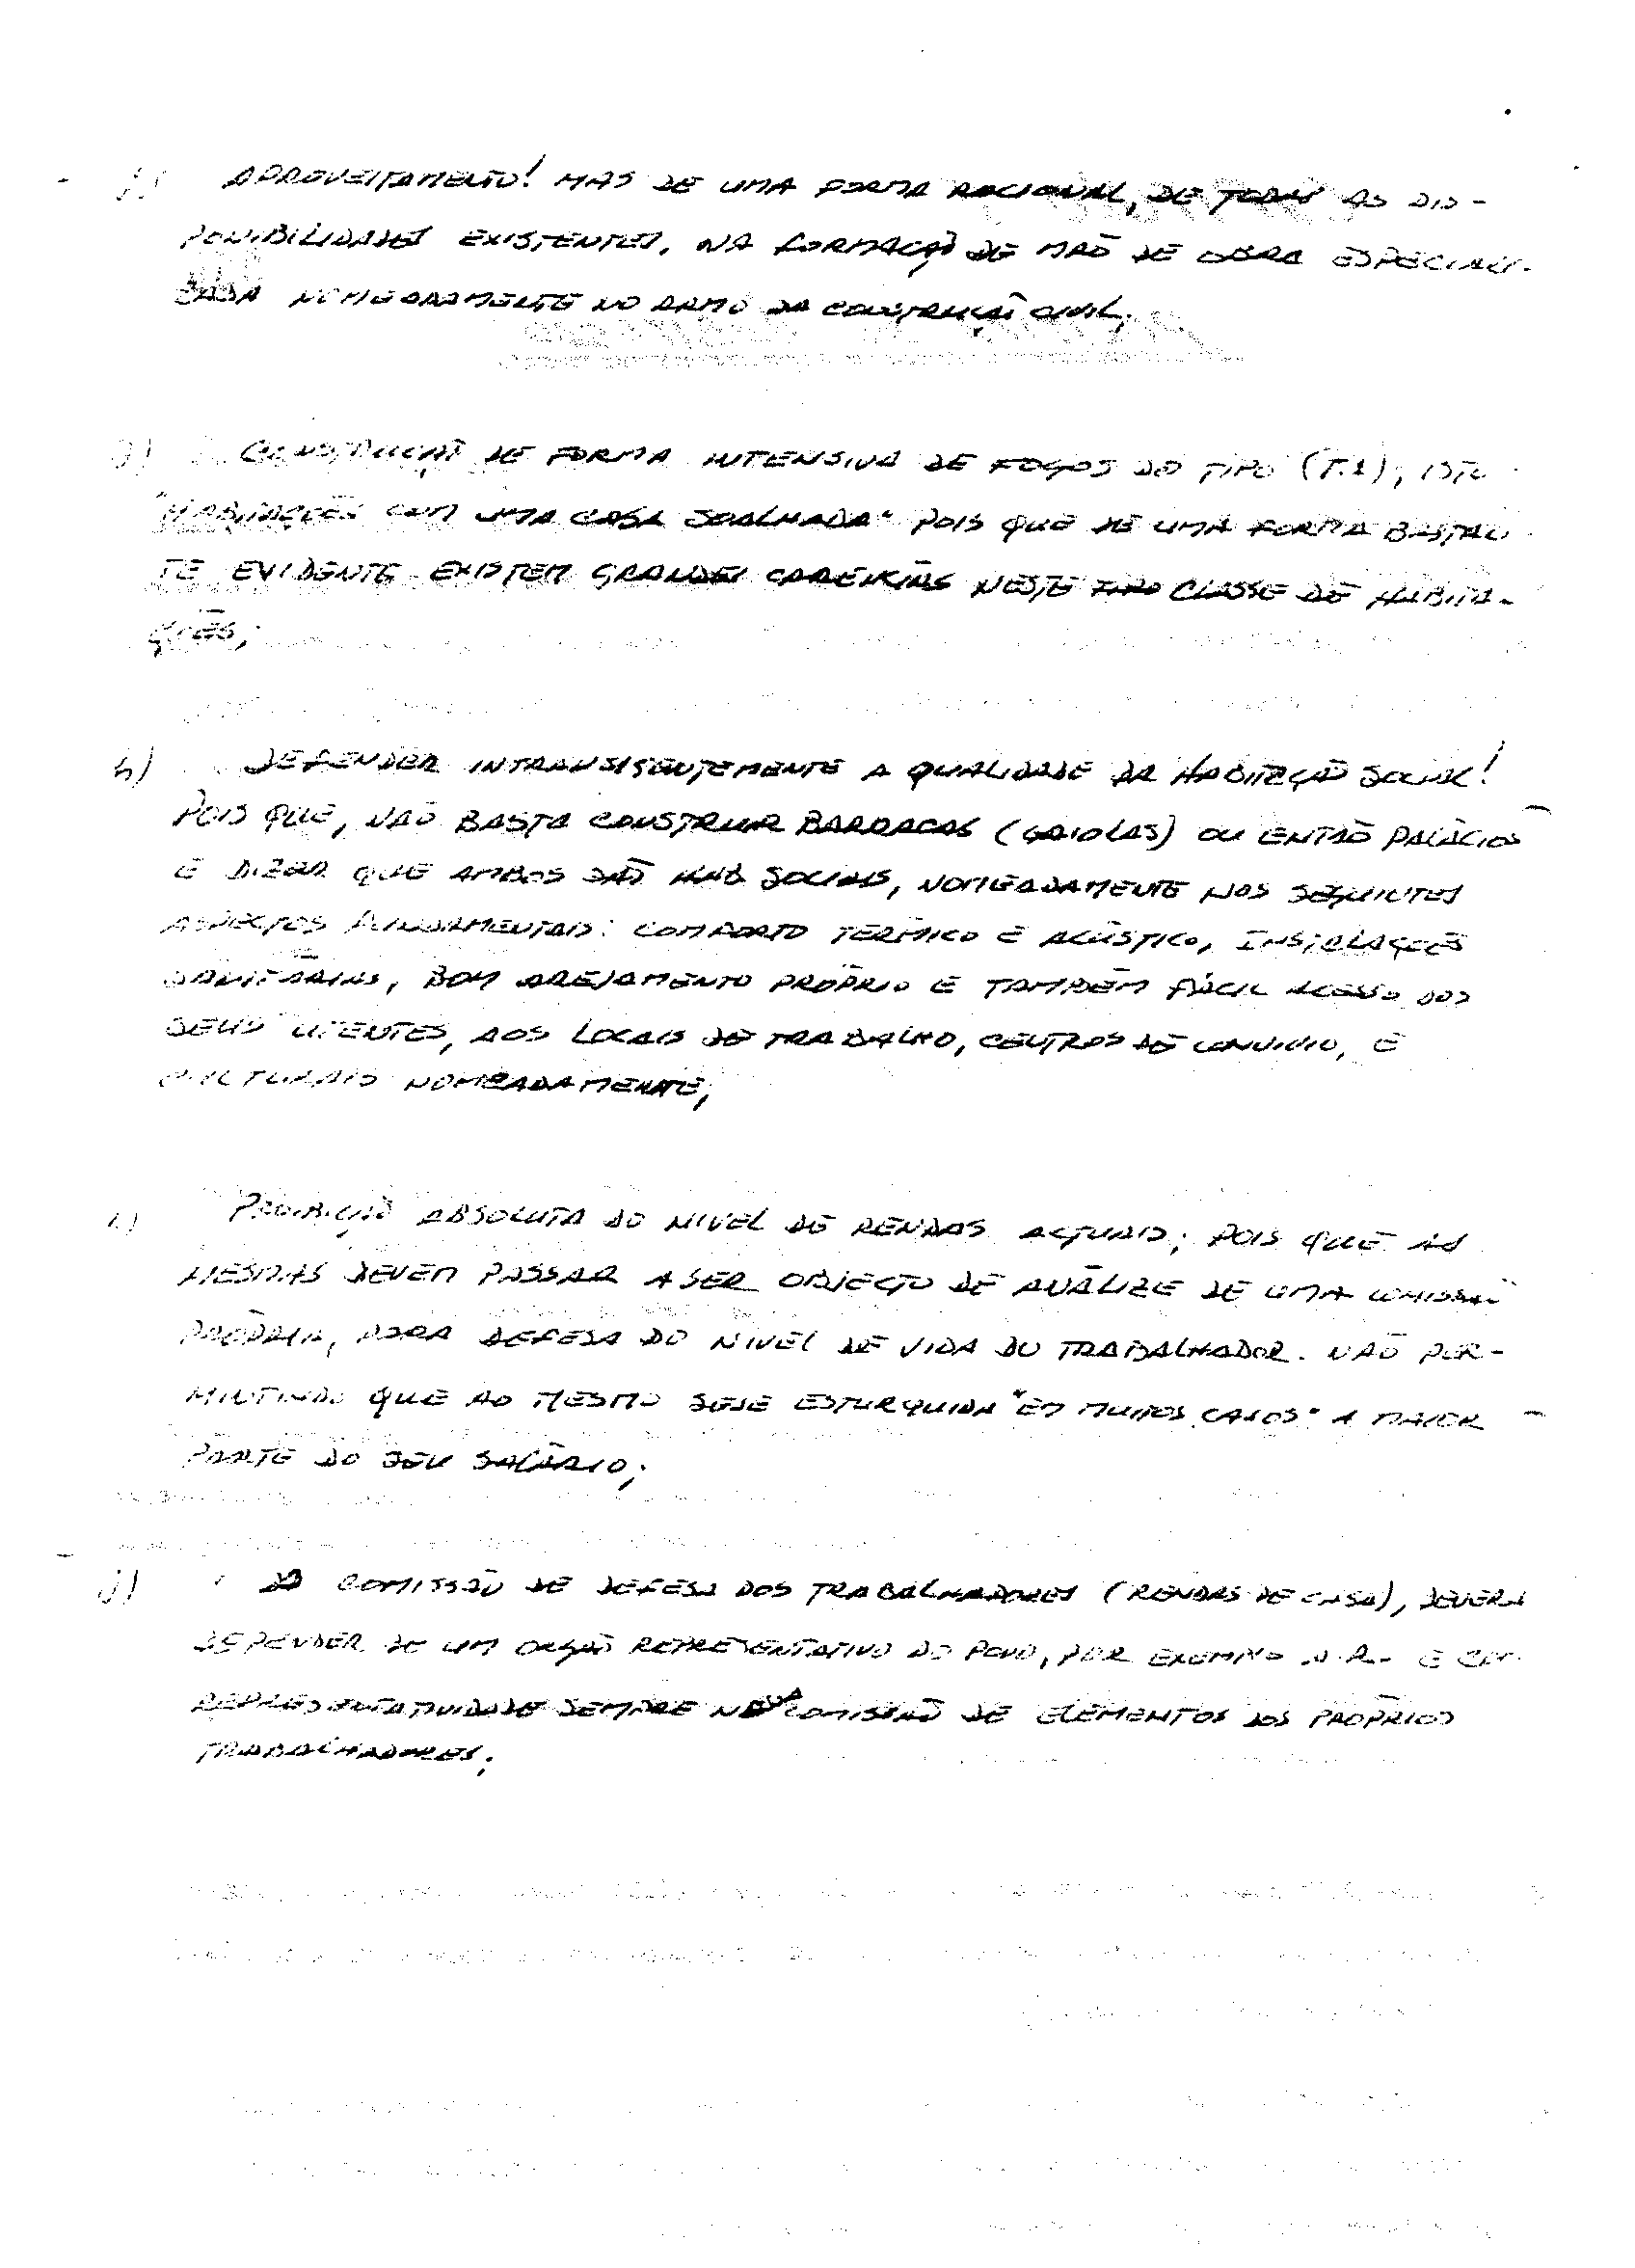 f) APROVEITAMENTO! MAS DE UMA FORMA RACIONAL, DE TODAS AS DIS-
PONIBILIDADES EXISTENTES, NA FORMAÇÃO DE MÃO DE OBRA ESPECIALI-
ZADA NOMEADAMENTE NO RAMO DA CONSTRUÇÃO CIVIL;
g) CONSTRUÇÃO DE FORMA INTENSIVA DE FOGOS DO TIPO (T.1), ISTO
"HABITAÇÕES COM UMA CASA SOALHADA" POIS QUE DE UMA FORMA BASTAN
TE EVIDENTE EXISTEM GRANDES CARÊNCIAS NESTE TIPO CLASSE DE HABITA-
ÇÕES;
h) DEFENDER INTRANSIGENTEMENTE A QUALIDADE DA HABITAÇÃO SOCIAL!
POIS QUE, NÃO BASTA CONSTRUIR BARRACAS (GAIOLAS) OU ENTÃO PALÁCIOS
E DIZER QUE AMBOS SÃO SOCIAIS, NOMEADAMENTE NOS SEGUINTES
ASPECTOS FUNDAMENTAIS: CONFORTO TÉRMICO E ACÚSTICO, INSTALAÇÕES
SANITÁRIAS, BOM AREJAMENTO PRÓPRIO E TAMBÉM FÁCIL ACESSO DOS
SEUS UTENTES, AOS LOCAIS DE TRABALHO, CENTROS DE CONVIVIO, E
CULTURAIS NOMEADAMENTE;
i) PROIBIÇÃO ABSOLUTA DO NIVEL DE RENDAS ACTUAIS; POIS QUE AS
MESMAS DEVEM PASSAR A SER OBJECTO DE ANÁLIZE DE UMA COMISSÃO
PRÓPRIA, PARA DEFESA DO NIVEL DE VIDA DO TRABALHADOR. NÃO PER-
MITINDO QUE AO MESMO SEJE ESTURQUIDA "EM MUITOS CASOS" A MAIOR
PARTE DO SEU SALÁRIO;
j) COMISSÃO DE DEFESA DOS TRABALHADORES (RENDAS DE CASA), DEVERÁ
DEPENDER DE UM ORGÃO REPRESENTATIVO DO POVO, POR EXEMPLO A.R. E COM
REPRESENTATIVIDADE SEMPRE NESSA COMISSÃO DE ELEMENTOS DOS PRÓPRIOS
TRABALHADORES;